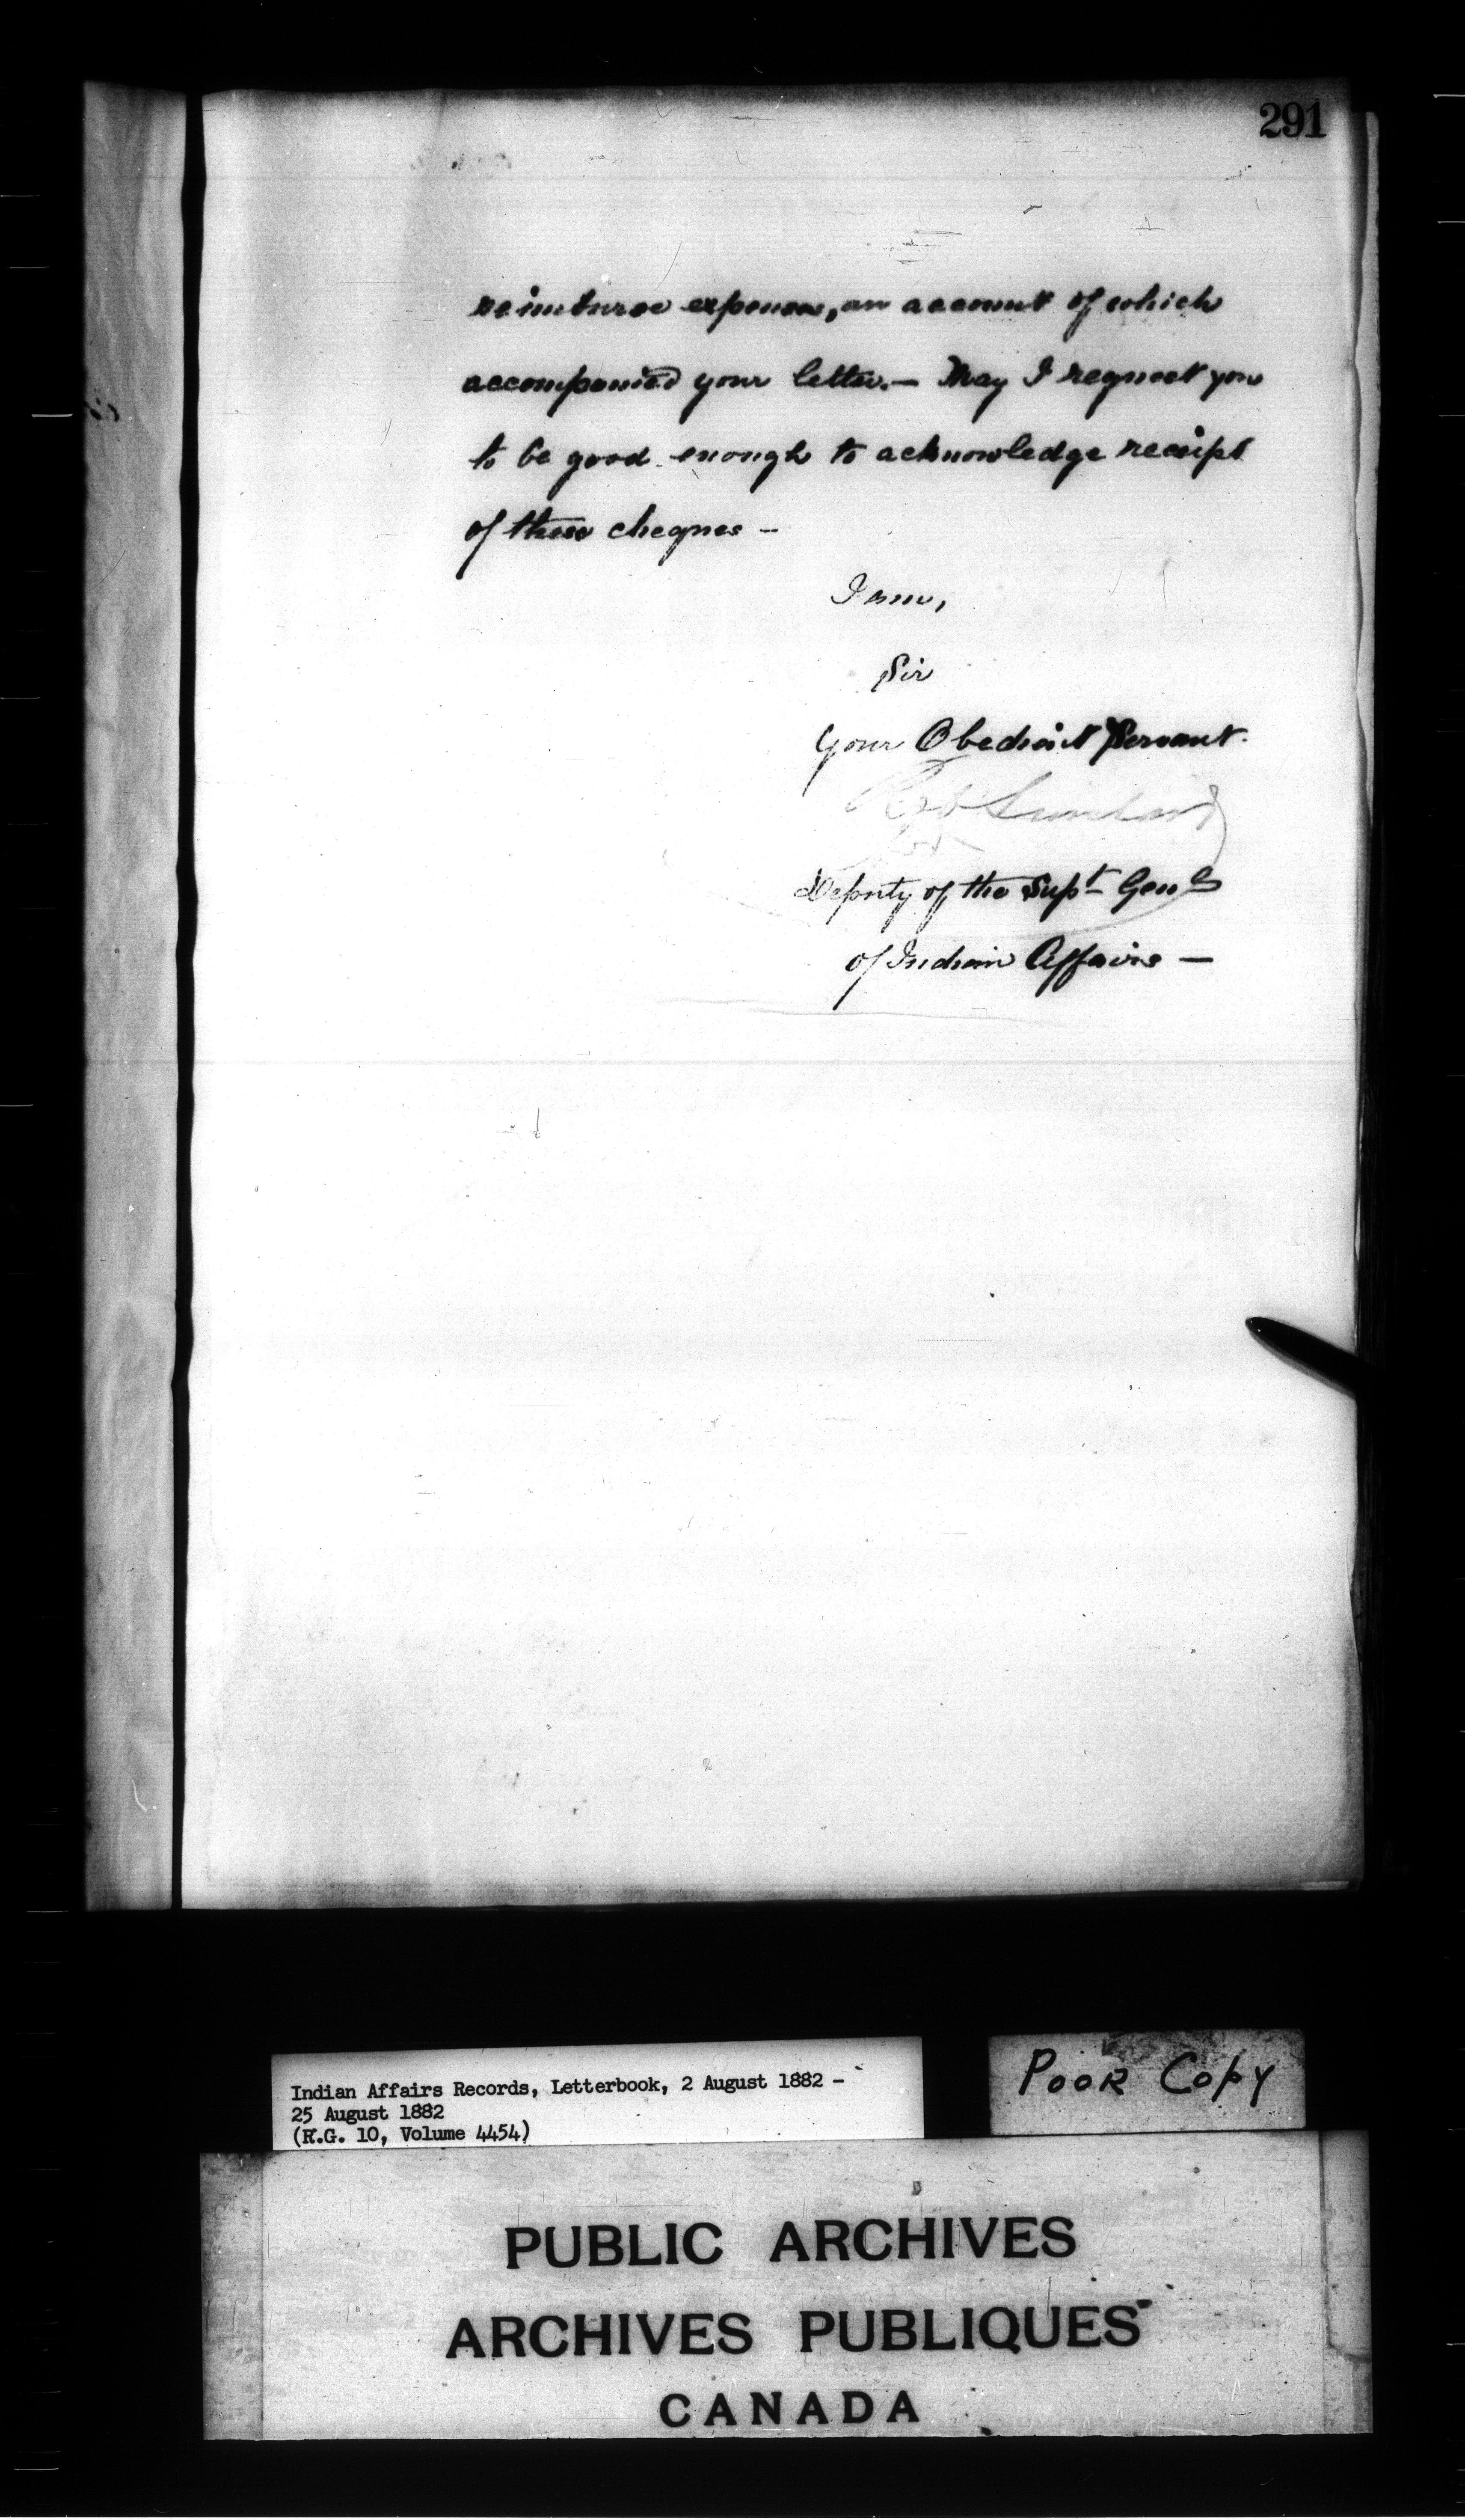 291
reimburse expenses, an account of which
accompanied your letter.— May I request you
to be good enough to acknowledge receipt
of these cheques —
I am,
Sir
Your Obedient Servant.
Deputy of the Supt Genl
of Indian Affairs —
Indian Affairs Records, Letterbook, 2 August 1882 -
25 August 1882
(R.G. 10, Volume 4454)
POOR COPY
PUBLIC ARCHIVES
ARCHIVES PUBLIQUES
CANADA